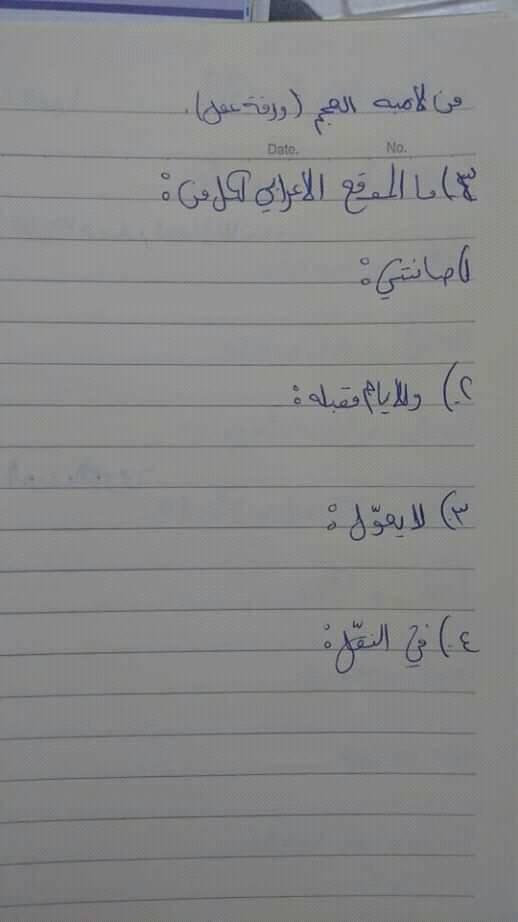 من لامية العجم (ورقة عمل).
Date. No.
س٣) ما الموقع الإعرابي لكل من :
١) صانتني :
٢) وللأيام مقبلة :
٣) لا يعوّل :
٤) في النقل :